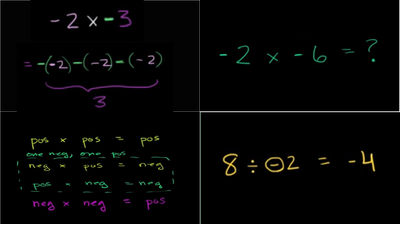 -2 x -3
= -(-2) -(-2) -(-2)
3
-2 x -6 = ?
pos x pos = pos
one neg, one pos
neg x pos = neg
pos - neg = neg
neg x neg = pos
8 ÷ -2 = -4